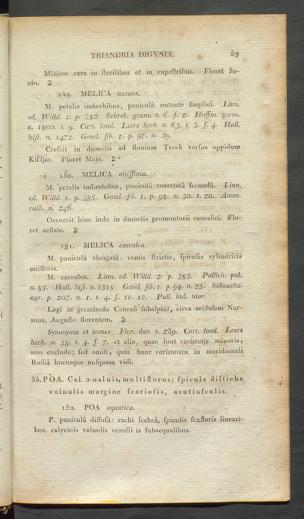 TRIANDRIA DIGYNIA. 59
Minime rara in sterilibus et in rupestribus. Floret Iu-
nio. ♃
149. MELICA nutans.
M. petalis imberbibus, panicula nutante simplici. Linn.
ed. Willd. 1. p. 382. Schreb. gram. t. 6. f. 2. Hoffm. germ.
a. 1800. 1. 9. Curt. lond. Leers herb. n. 63. t. 3. f. 4. Hall.
hist. n. 1472. Gmel. sib. 1. p. 97. n. 29.
Crescit in dumetis ad fluvium Terek versus oppidum
Kisljar. Floret Majo. ♃
150. MELICA altissima.
M. petalis imberbibus, panicula coarctata secunda. Linn.
ed. Willd. 1. p. 385. Gmel. sib. 1. p. 98. n. 30. t. 20. Amm.
ruth. n. 246.
Occurrit hinc inde in dumetis promontorii caucasici. Flo-
ret aestate. ♃
151. MELICA coerulea.
M. panicula elongata: ramis strictis, spiculis cylindricis
unifloris.
M. coerulea. Linn. ed. Willd. 2. p. 383. Pollich. pal.
n. 85. Hall. hist. n. 1315. Gmel. sib. 1. p. 94. n. 25. Scheuchz.
agr. p. 207. n. 1. t. 4. f. 11. 12. Pall. ind. taur.
Legi in graminosis Caucasi subalpini, circa acidulam Nar-
zana, Augusto florentem. ♃
Synonyma et icones Flor. dan. t. 239. Curt. lond. Leers
herb. n. 38. t. 4. f. 7. et alia, quae sunt varietatis minoris,
non excludo; sed omisi, quia hanc varietatem in meridionali
Rossia hucusque nusquam vidi.
35. POA. Cal. 2-valuis, multiflorus; spicula disticha
valuulis margine scariosis, acutiusculis.
152. POA aquatica.
P. panicula diffusa: rachi scabra, spiculis sexfloris lineari-
bus, calycinis valuulis corolli is subaequalibus.